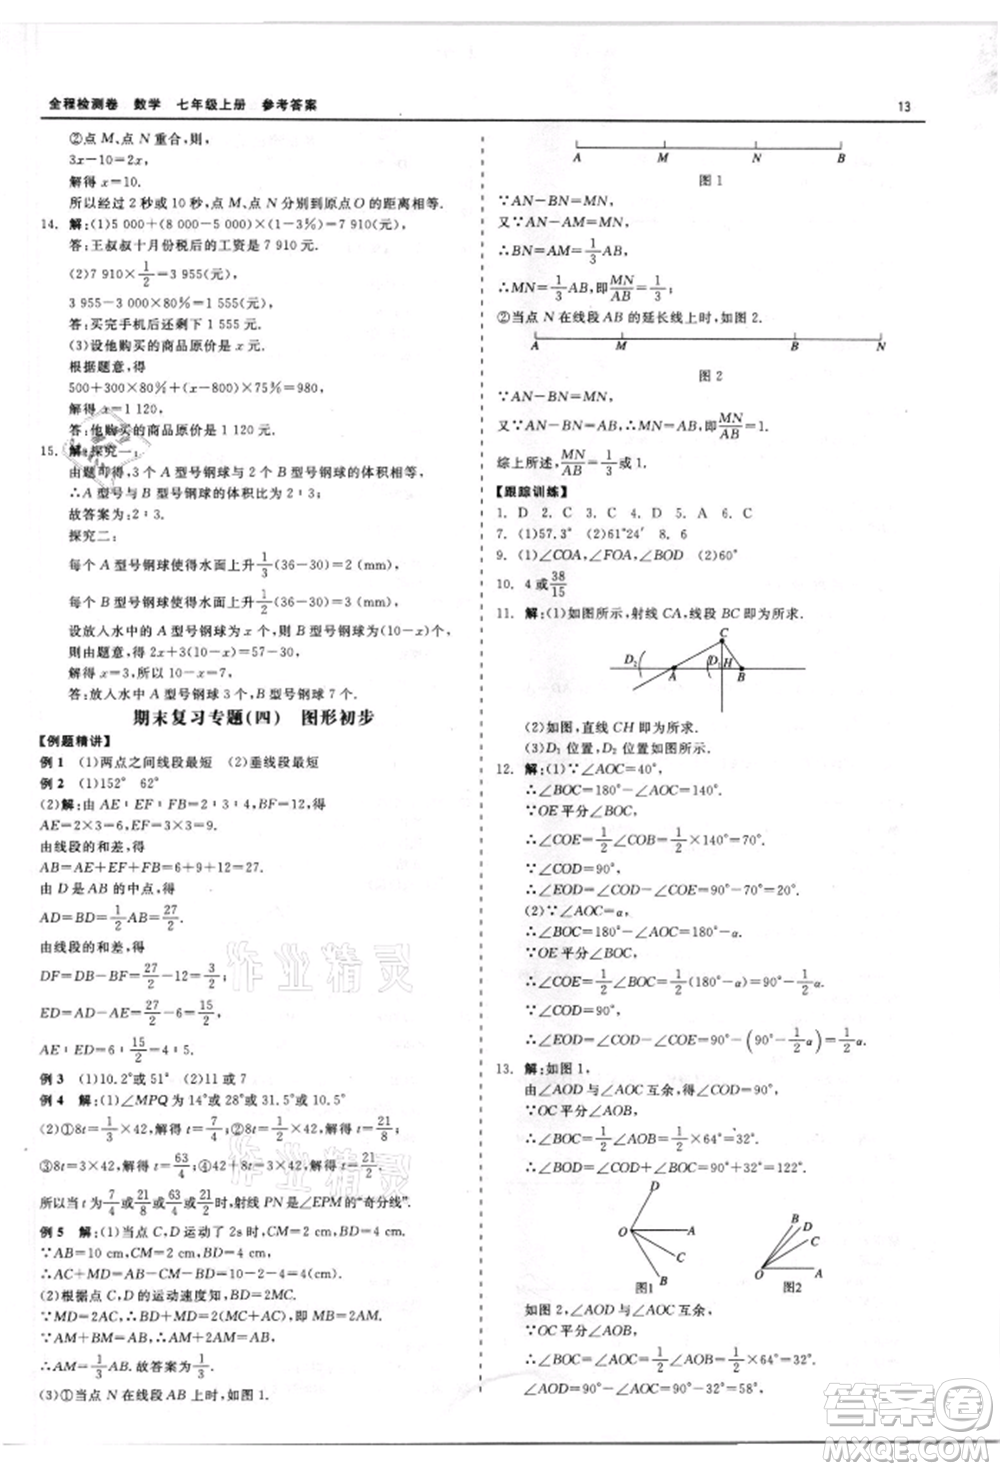 全程检测卷 数学 七年级上册 参考答案
13
②点 M、点 N 重合,得
3x-10=2x.
解得 x=10.
所以经过 2 秒或 10 秒,点 M、点 N 分别到原点 O 的距离相等.
14. 解:(1)5 000+(8 000-5 000)×(1-3%)=7 910(元),
答:王叔叔十月份税后的工资是 7 910 元.
(2)7 910×1/2=3 955(元),
3 955-3 000×80%=1 555(元).
答:买完手机后还剩下 1 555 元.
(3)设他购买的商品原价是 x 元.
根据题意,得
500+300×80%+(x-800)×75%=980.
解得 x=1 120.
答:他购买的商品原价是 1 120 元.
15. 解:探究一:
由题可得,3 个 A 型号钢球与 2 个 B 型号钢球的体积相等,
∴A 型号与 B 型号钢球的体积比为 2∶3.
故答案为:2∶3.
探究二:
每个 A 型号钢球使得水面上升 1/3(36-30)=2 (mm),
每个 B 型号钢球使得水面上升 1/2(36-30)=3 (mm),
设放入水中的 A 型号钢球为 x 个,则 B 型号钢球为(10-x)个,
则由题意列方程,得 2x+3(10-x)=57-30.
解得 x=3,所以 10-x=7.
答:放入水中的 A 型号钢球 3 个,B 型号钢球 7 个.
期末复习专题(四) 图形初步
【例题精讲】
例 1 (1)两点之间线段最短 (2)垂线段最短
例 2 (1)152° 62°
(2)解:由 AE∶EF∶FB=2∶1∶2,得
AE=2×3=6,FB=3×3=9.
由线段的和差,得
AB=AE+EF+FB=6+9+12=27.
由 D 是 AB 的中点,得
AD=BD=1/2AB=27/2.
由线段的和差,得
DF=DB-BF=27/2-12=3/2;
EF=AE-AD-DF=27/2-6=15/2.
例 3 (1)10.2°或 51° (2)11 或 7
例 4 解:(1)∠MPQ=14°或28°或31.5°或10.5°.
③8t=3×42,解得 t=63/4;④42=3×8t,解得 t=7/4.
例 5 解:(1)当点 C,D 运动了 2s时,CM=2 cm,BD=4 cm.
∵AB=10 cm,CM=2 cm,BD=4 cm,
∴AC+MD=AB-CM-BD=10-2-4=4 cm.
(2)根据点 C,D 的运动速度知,BD=2MC.
∵MD=2AC,∴BD+MD=2(MC+AC),即 MB=2AM.
∵AM+BM=AB,∴AM+2AM=AB.
∴AM=1/3AB.故答案为:1/3.
(3)①当点 N 在线段 AB 上时,如图 1.
A M N B
图 1
∵AN-BN=MN,
又∵AN-AM=MN,
∴BN=AM=1/3AB.
∴MN=1/3AB,即MN/AB=1/3;
②当点 N 在线段 AB 的延长线上时,如图 2.
A M B N
图 2
∵AN-BN=MN,
又∵AN-BN=AB,∴MN=AB.∴MN/AB=1.
综上所述,MN/AB=1/3或1.
【跟踪训练】
1. D 2. C 3. C 4. D 5. A 6. C
7. (1)57.3° (2)61°24′ 8. 6
9. (1)∠COA,∠FOA,∠BOD (2)60°
10. 4 或38/15
11. 解:(1)如图所示,射线 CA,线段 BC即为所求.
C
D₂ A D₁ H B
(2)如图,直线 CH 即为所求.
(3)D₁ 位置,D₂ 位置如图所示.
12. 解:(1)∵∠AOC=40°,
∴∠BOC=180°-∠AOC=140°.
∵OE平分∠BOC,
∴∠COE=1/2∠COB=1/2×140°=70°.
∵∠COD=90°,
∴∠EOD=∠COD-∠COE=90°-70°=20°.
(2)∵∠AOC=α,
∴∠BOC=180°-∠AOC=180°-α.
∵OE平分∠BOC,
∴∠COE=1/2∠BOC=1/2(180°-α)=90°-1/2α.
∵∠COD=90°,
∴∠EOD=∠COD-∠COE=90°-(90°-1/2α)=1/2α.
13. 解:如图 1,
由∠AOD与∠AOC互余,得∠COD=90°,
∵OC平分∠AOB,
∴∠BOC=1/2∠AOB=1/2×64°=32°.
∴∠BOD=∠BOC+∠COD=32°+90°=122°.
D
O A
C
B
图1
O A
图2
如图 2,∠AOD与∠AOC互余,
∵OC平分∠AOB,
∴∠AOC=1/2∠AOB=1/2×64°=32°.
∠AOD=90°-∠AOC=90°-32°=58°,
作业精灵
作业精灵
答案卷
MXQE.COM